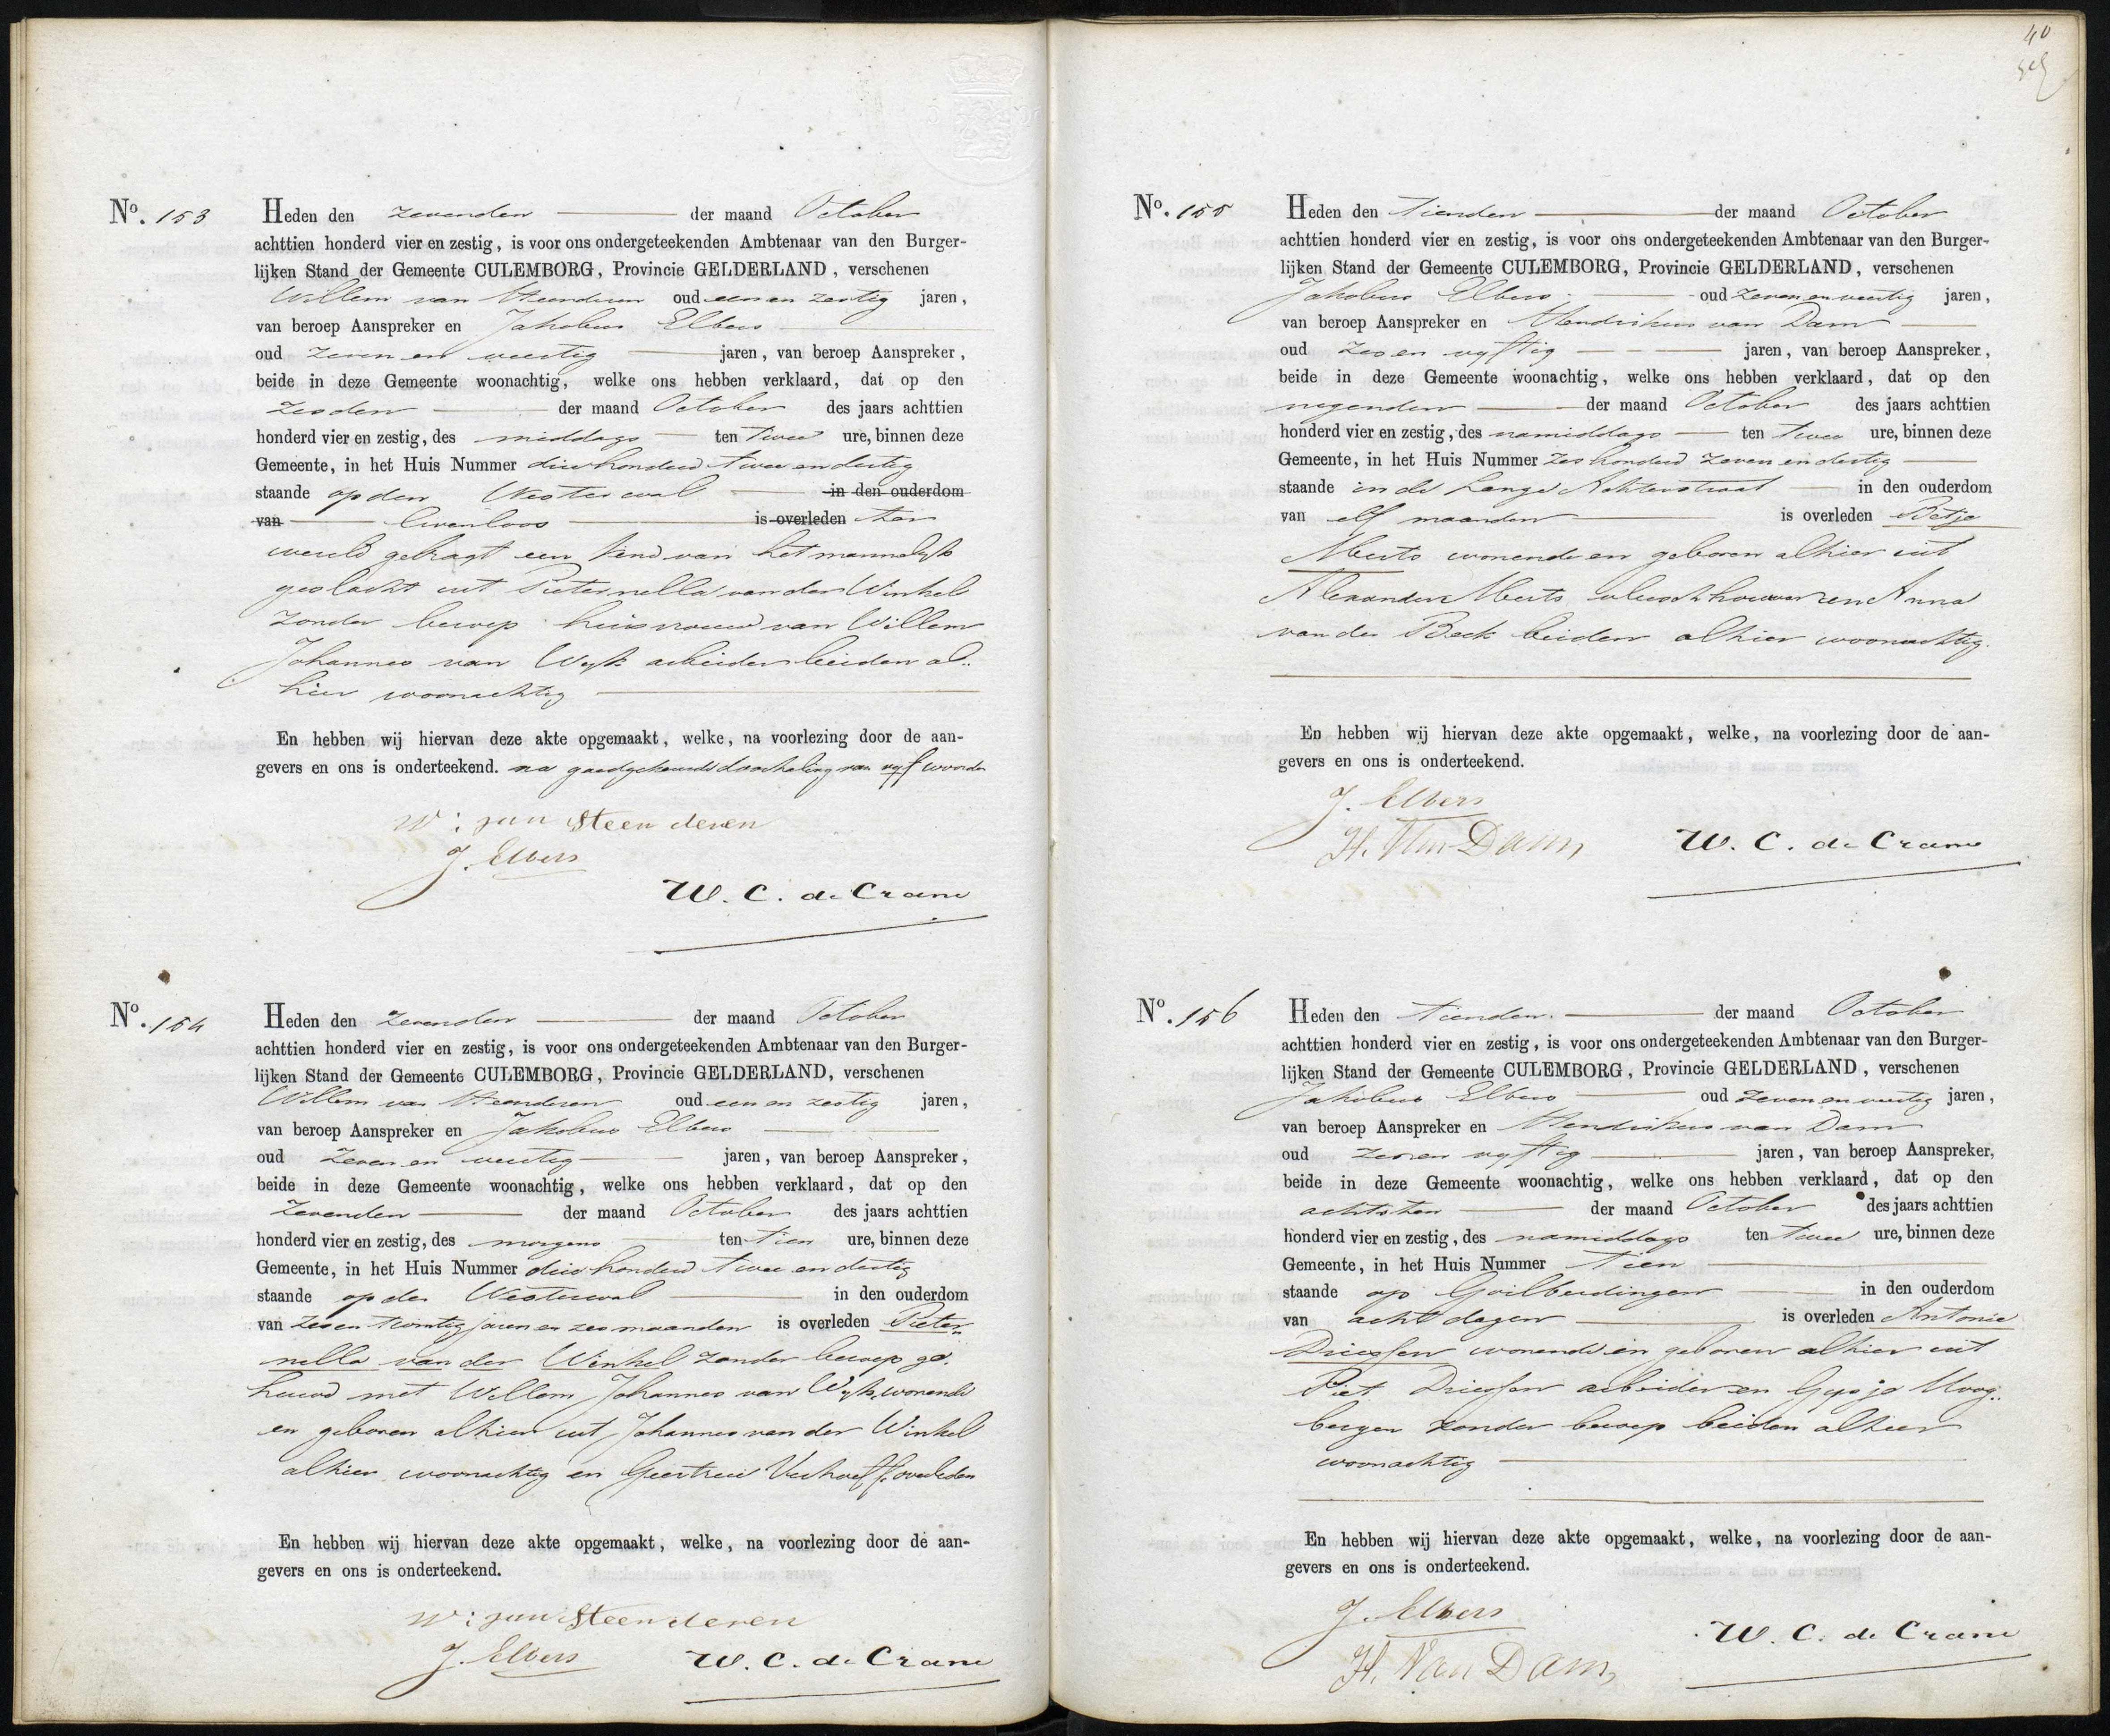 No. 153 Heden den zevenden der maand October
achttien honderd vier en zestig, is voor ons ondergeteekenden Ambtenaar van den Burger-
lijken Stand der Gemeente CULEMBORG, Provincie GELDERLAND, verschenen
Willem van Steenderen oud een en zestig jaren,
van beroep Aanspreker en Jakobus Elbers
oud zeven en veertig jaren, van beroep Aanspreker,
beide in deze Gemeente woonachtig, welke ons hebben verklaard, dat op den
zesden der maand October des jaars achttien
honderd vier en zestig, des middags ten twee ure, binnen deze
Gemeente, in het Huis Nummer driehonderd twee en dertig
staande op den Westerwal in den ouderdom
van levenloos is overleden ter
wereld gebragt een kind van het mannelijk
geslacht uit Pieternella van der Winkel
zonder beroep huisvrouw van Willem
Johannes van Wijk arbeider beiden al-
hier woonachtig
En hebben wij hiervan deze akte opgemaakt, welke, na voorlezing door de aan-
gevers en ons is onderteekend. na goedgekeurde doorhaling van vijf woorden
W: van Steenderen
J. Elbers
W. C. de Crane
No. 154 Heden den zevenden der maand October
achttien honderd vier en zestig, is voor ons ondergeteekenden Ambtenaar van den Burger-
lijken Stand der Gemeente CULEMBORG, Provincie GELDERLAND, verschenen
Willem van Steenderen oud een en zestig jaren,
van beroep Aanspreker en Jakobus Elbers
oud zeven en veertig jaren, van beroep Aanspreker,
beide in deze Gemeente woonachtig, welke ons hebben verklaard, dat op den
zevenden der maand October des jaars achttien
honderd vier en zestig, des morgens ten tien ure, binnen deze
Gemeente, in het Huis Nummer drie honderd twee en dertig
staande op den Westerwal in den ouderdom
van zes en twintig jaren en zes maanden is overleden Pieter-
nella van der Winkel zonder beroep ge-
huwd met Willem Johannes van Wijk, wonende
en geboren alhier uit Johannes van der Winkel
alhier woonachtig en Geertrui Verhoeff overleden
En hebben wij hiervan deze akte opgemaakt, welke, na voorlezing door de aan-
gevers en ons is onderteekend.
W: van Steenderen
J. Elbers W. C. de Crane
40
No. 155 Heden den tienden der maand October
achttien honderd vier en zestig, is voor ons ondergeteekenden Ambtenaar van den Burger-
lijken Stand der Gemeente CULEMBORG, Provincie GELDERLAND, verschenen
Jakobus Elbers oud zeven en veertig jaren,
van beroep Aanspreker en Hendrikus van Dam
oud zes en vijftig jaren, van beroep Aanspreker,
beide in deze Gemeente woonachtig, welke ons hebben verklaard, dat op den
negenden der maand October des jaars achttien
honderd vier en zestig, des namiddags ten twee ure, binnen deze
Gemeente, in het Huis Nummer zes honderd zeven en dertig
staande in de Lange Achterstraat in den ouderdom
van elf maanden is overleden Betje
Meuts wonende en geboren alhier uit
Alexander Meuts vleeschhouwer en Anna
van der Beek beiden alhier woonachtig.
En hebben wij hiervan deze akte opgemaakt, welke, na voorlezing door de aan-
gevers en ons is onderteekend.
J. Elbers
H. Van Dam W. C. de Crane
No. 156 Heden den tienden der maand October
achttien honderd vier en zestig, is voor ons ondergeteekenden Ambtenaar van den Burger-
lijken Stand der Gemeente CULEMBORG, Provincie GELDERLAND, verschenen
Jakobus Elbers oud zeven en veertig jaren,
van beroep Aanspreker en Hendrikus van Dam
oud zes en vijftig jaren, van beroep Aanspreker,
beide in deze Gemeente woonachtig, welke ons hebben verklaard, dat op den
achtsten der maand October des jaars achttien
honderd vier en zestig, des namiddags ten twee ure, binnen deze
Gemeente, in het Huis Nummer tien
staande op Goilberdingen in den ouderdom
van acht dagen is overleden Antonie
Driessen wonende en geboren alhier uit
Piet Driessen arbeider en Gepje Hoog-
bergen zonder beroep beiden alhier
woonachtig
En hebben wij hiervan deze akte opgemaakt, welke, na voorlezing door de aan-
gevers en ons is onderteekend.
J. Elbers
H. Van Dam W. C. de Crane